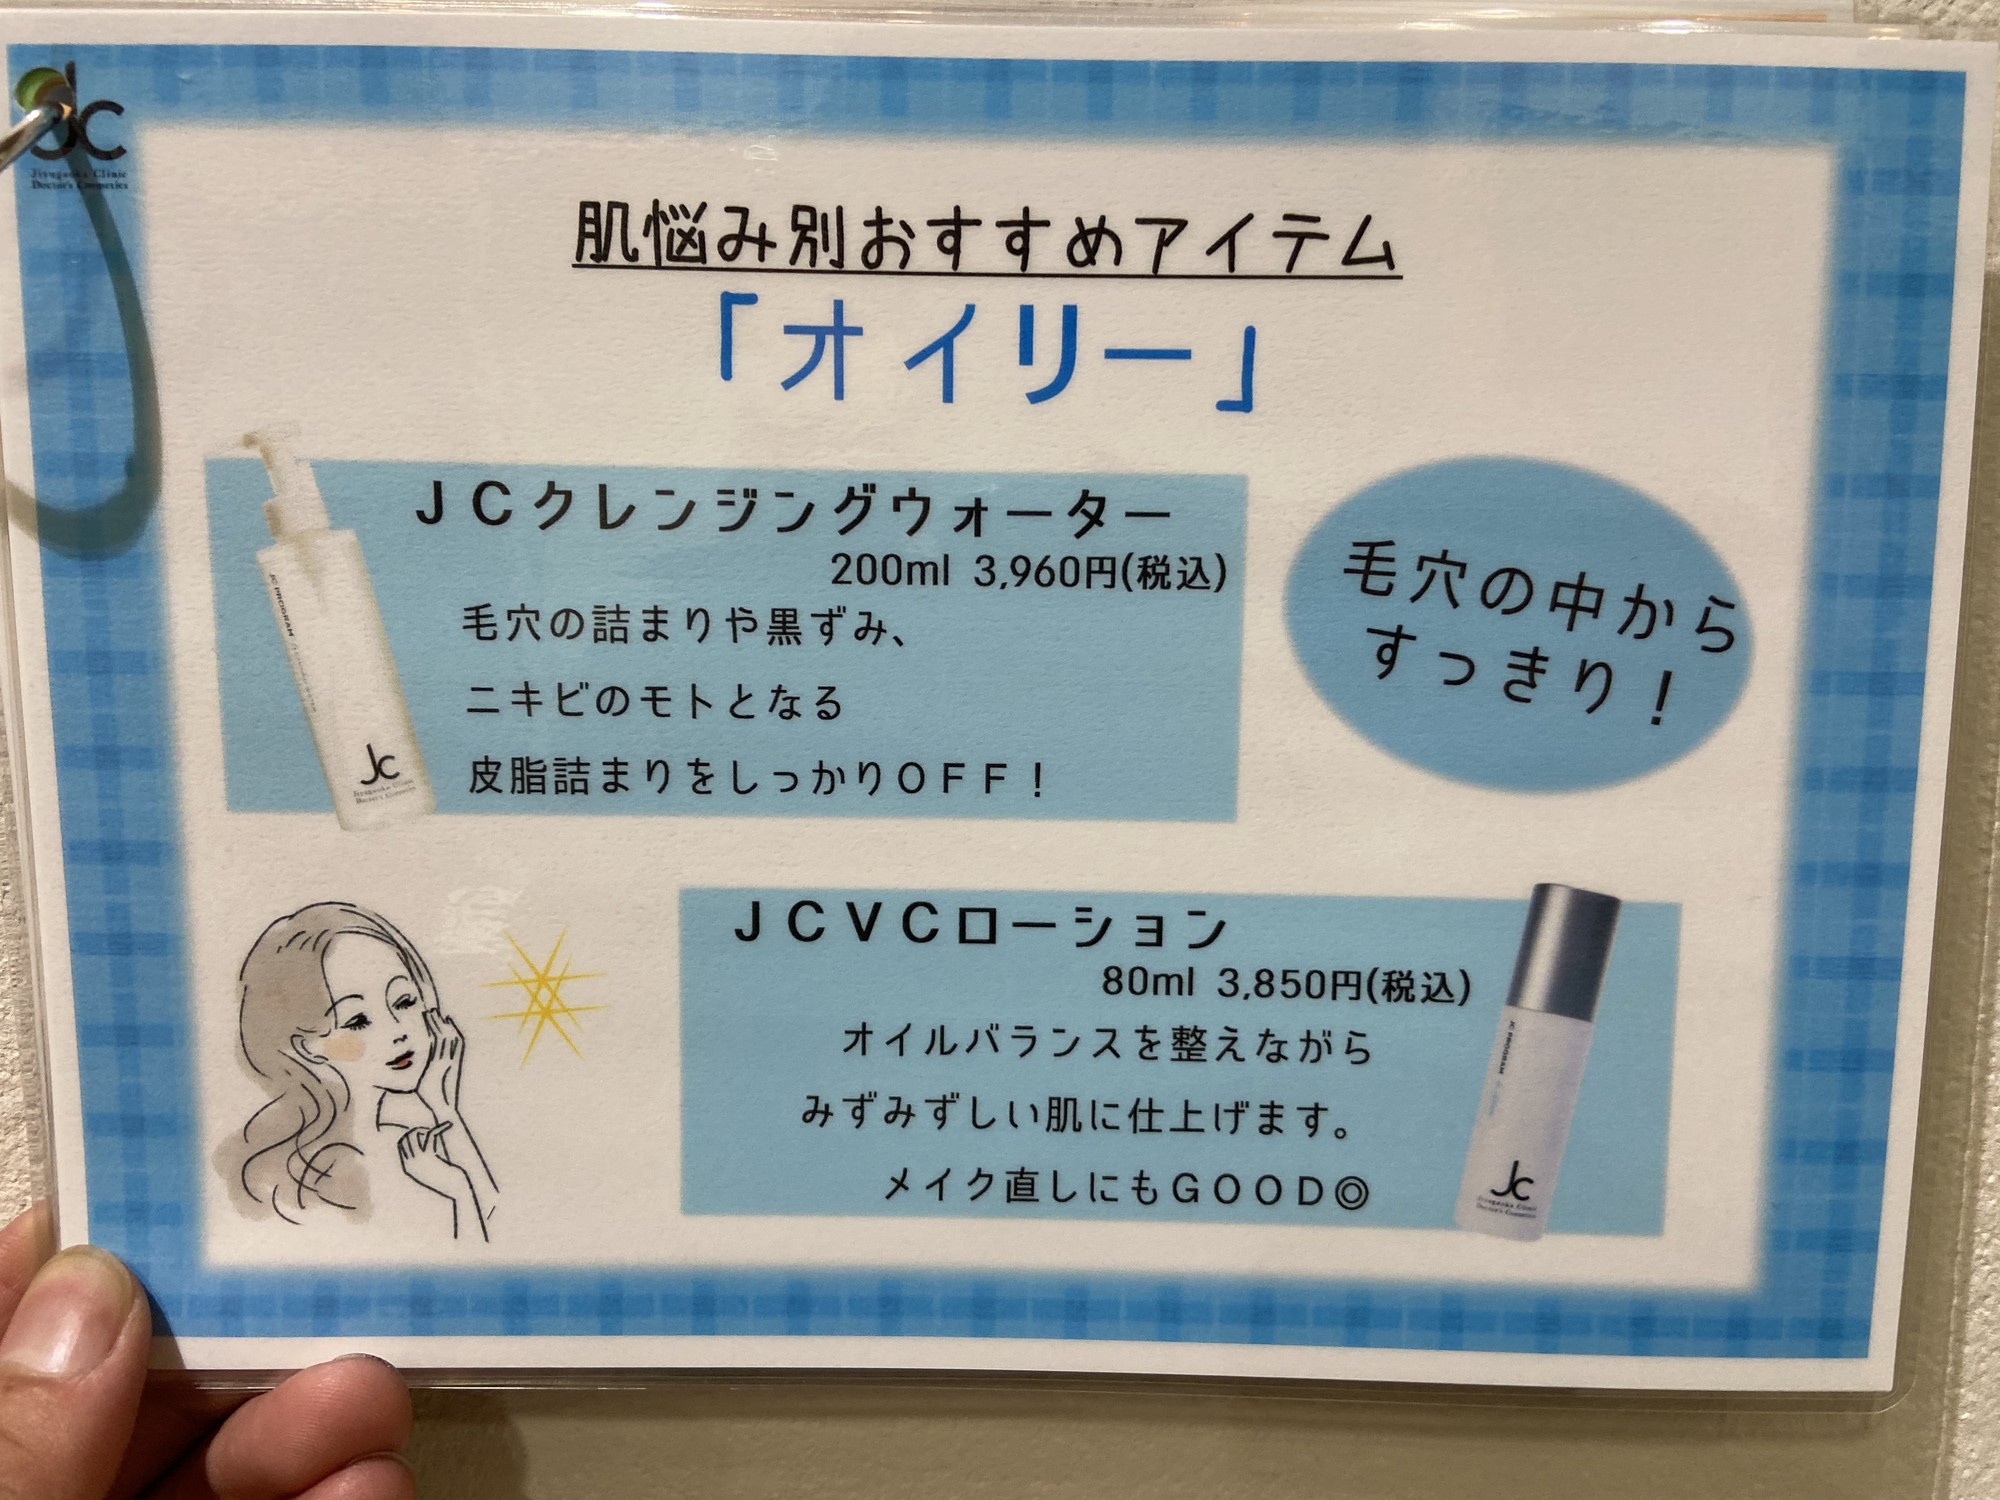 JC
Jiyugaoka Clinic
Doctor's Cosmetics
肌悩み別おすすめアイテム
「オイリー」
JCクレンジングウォーター
200ml 3,960円(税込)
毛穴の詰まりや黒ずみ、
ニキビのモトとなる
皮脂詰まりをしっかりOFF！
毛穴の中から
すっきり！
JC PROGRAM
Jc
Jiyugaoka Clinic
Doctor's Cosmetics
JCVCローション
80ml 3,850円(税込)
オイルバランスを整えながら
みずみずしい肌に仕上げます。
メイク直しにもGOOD◎
JC PROGRAM
Jc
Jiyugaoka Clinic
Doctor's Cosmetics